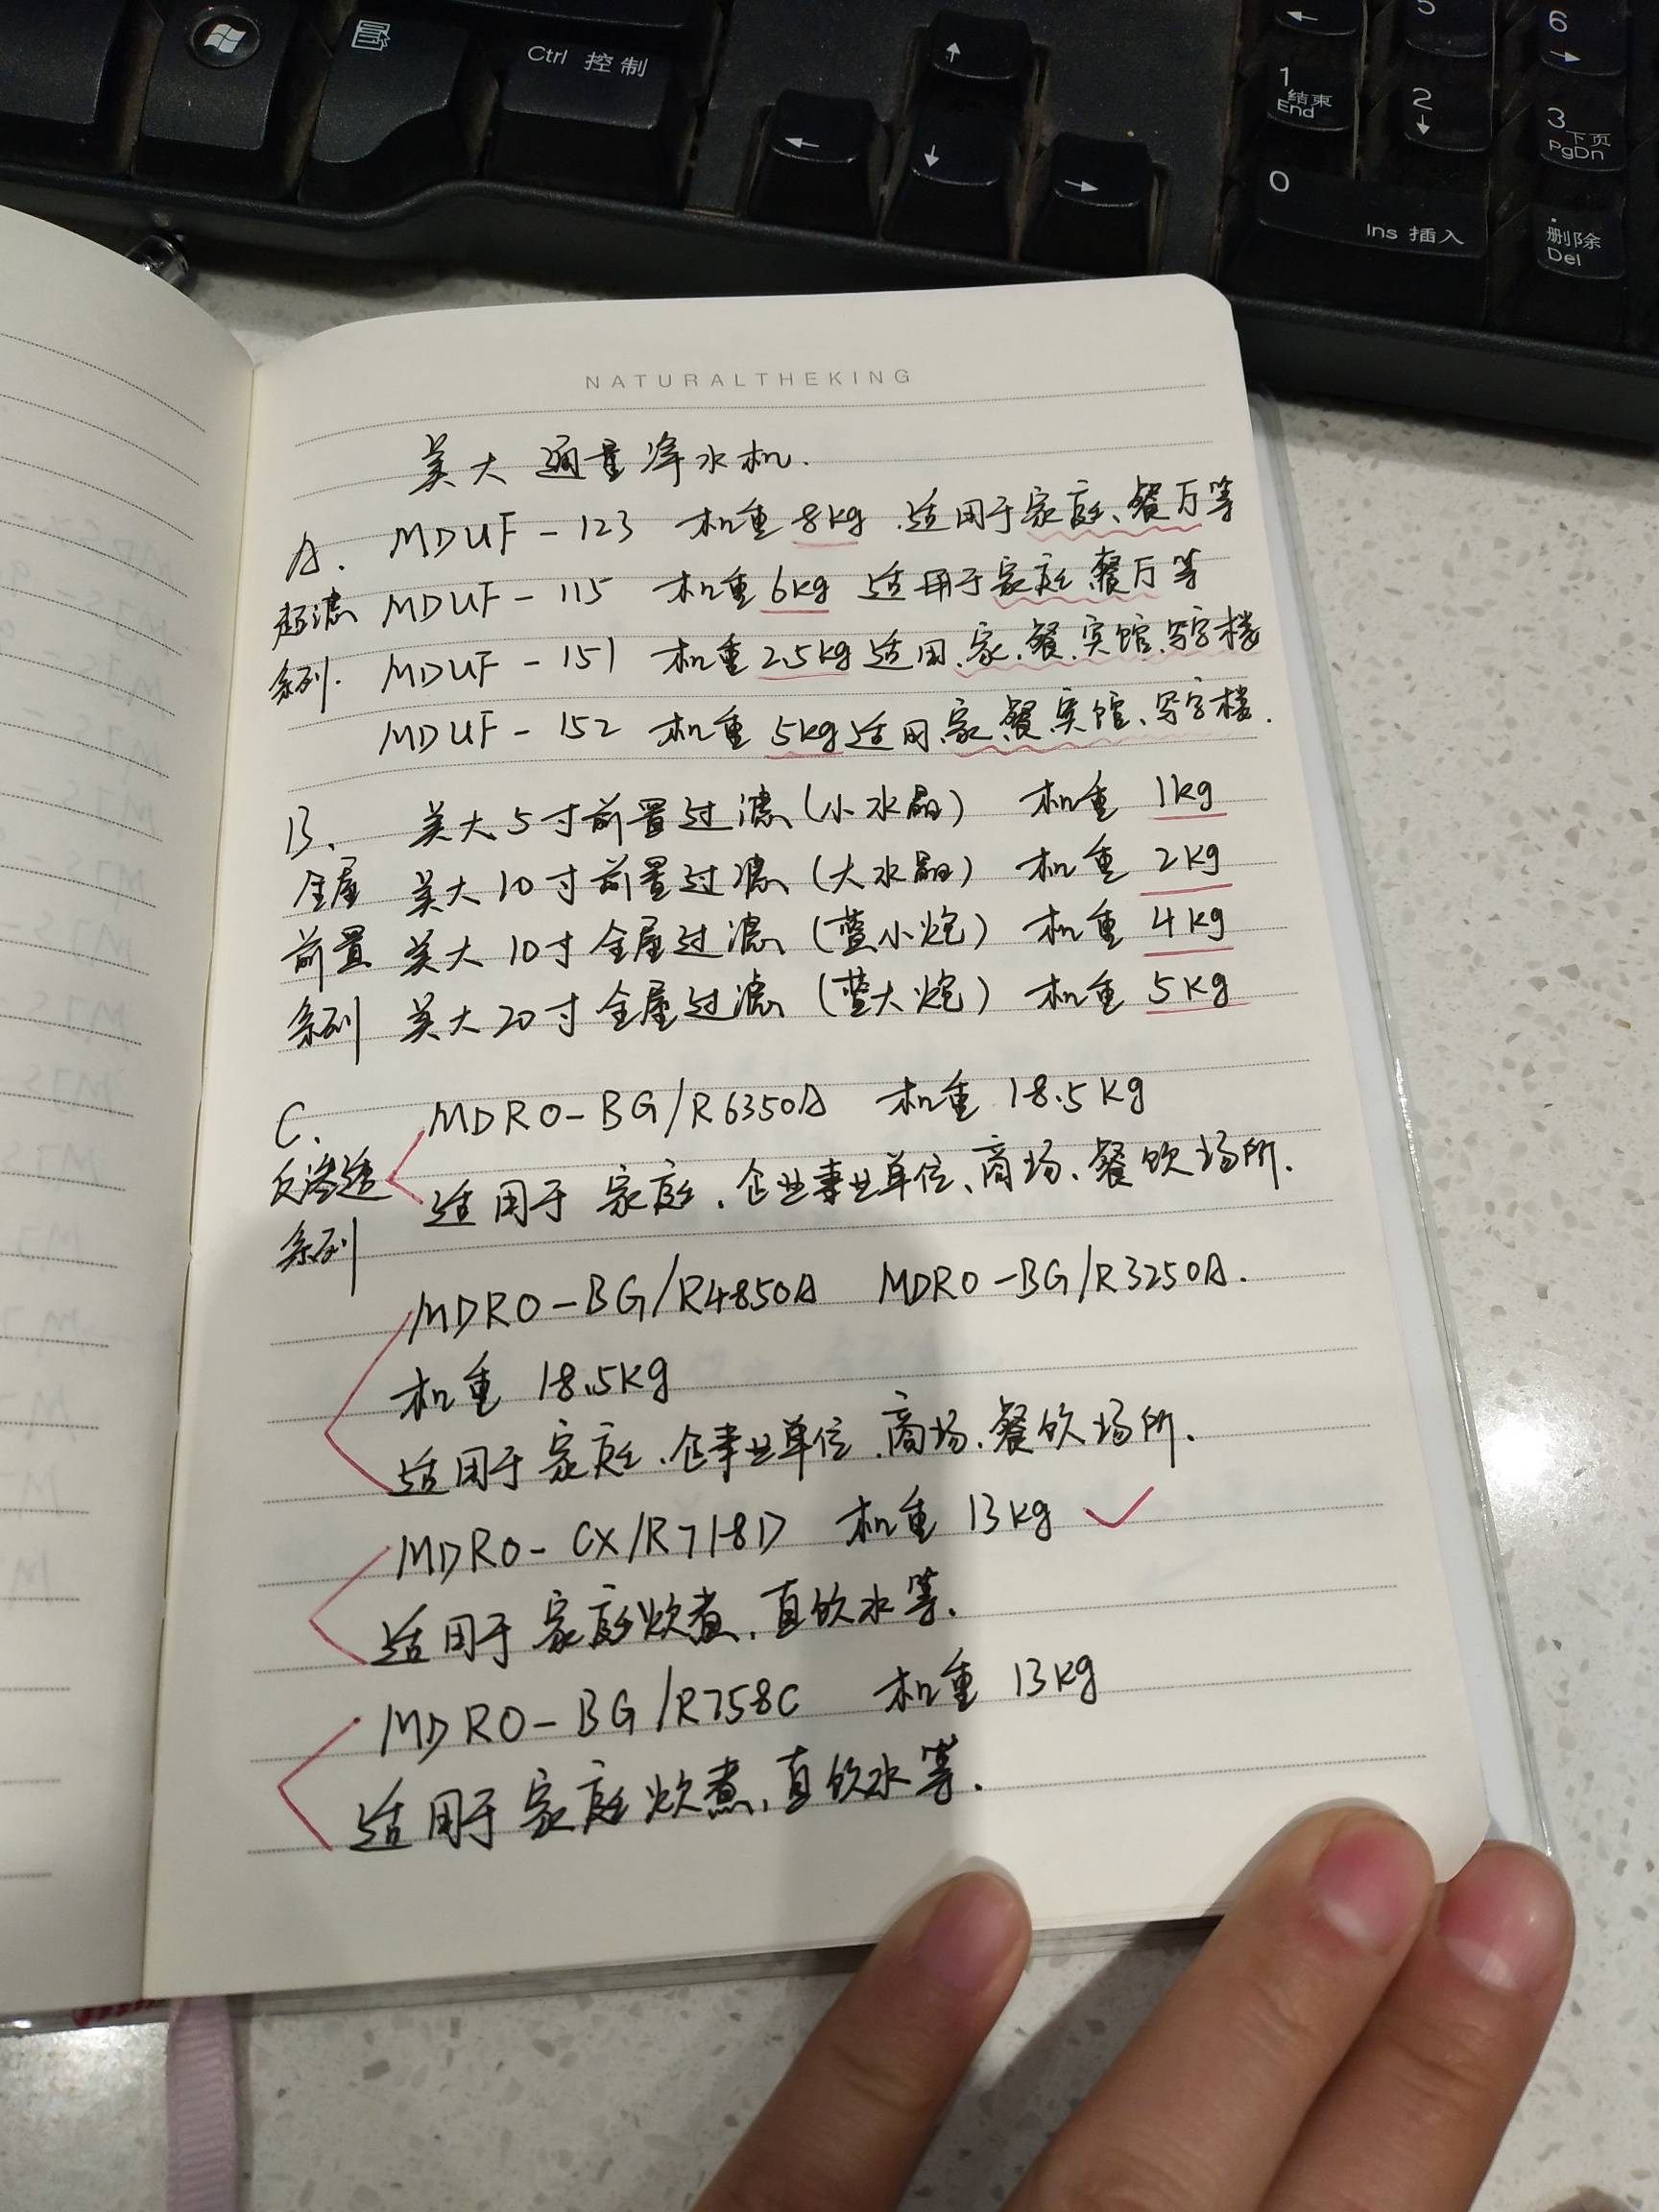 Ctrl 控制
5
6
1
结束
End
2
3
下页
PgDn
0
Ins 插入
删除
Del
NATURALTHEKING
美大 通量净水机.
A. MDUF-123 机重 8kg .适用于家庭、餐厅等
超滤 MDUF-115 机重 6kg 适用于家庭 餐厅等
系列. MDUF-151 机重 2.5kg 适用.家.餐.宾馆.写字楼
MDUF-152 机重 5kg 适用.家.餐.宾馆、写字楼.
B. 美大5寸前置过滤(小水晶) 机重 1kg
全屋 美大10寸前置过滤(大水晶) 机重 2kg
前置 美大10寸全屋过滤(蓝小炮) 机重 4kg
系列 美大20寸全屋过滤(蓝大炮) 机重 5kg
C. MDRO-BG/R6350A 机重 18.5kg
反渗透 适用于 家庭.企业事业单位、商场、餐饮场所.
系列
MDRO-BG/R4850A MDRO-BG/R3250A.
机重 18.5kg
适用于 家庭.企事业单位.商场、餐饮场所.
MDRO-CX/R718D 机重 13kg
适用于 家庭炊煮.直饮水等.
MDRO-BG/R758C 机重 13kg
适用于家庭炊煮,直饮水等.